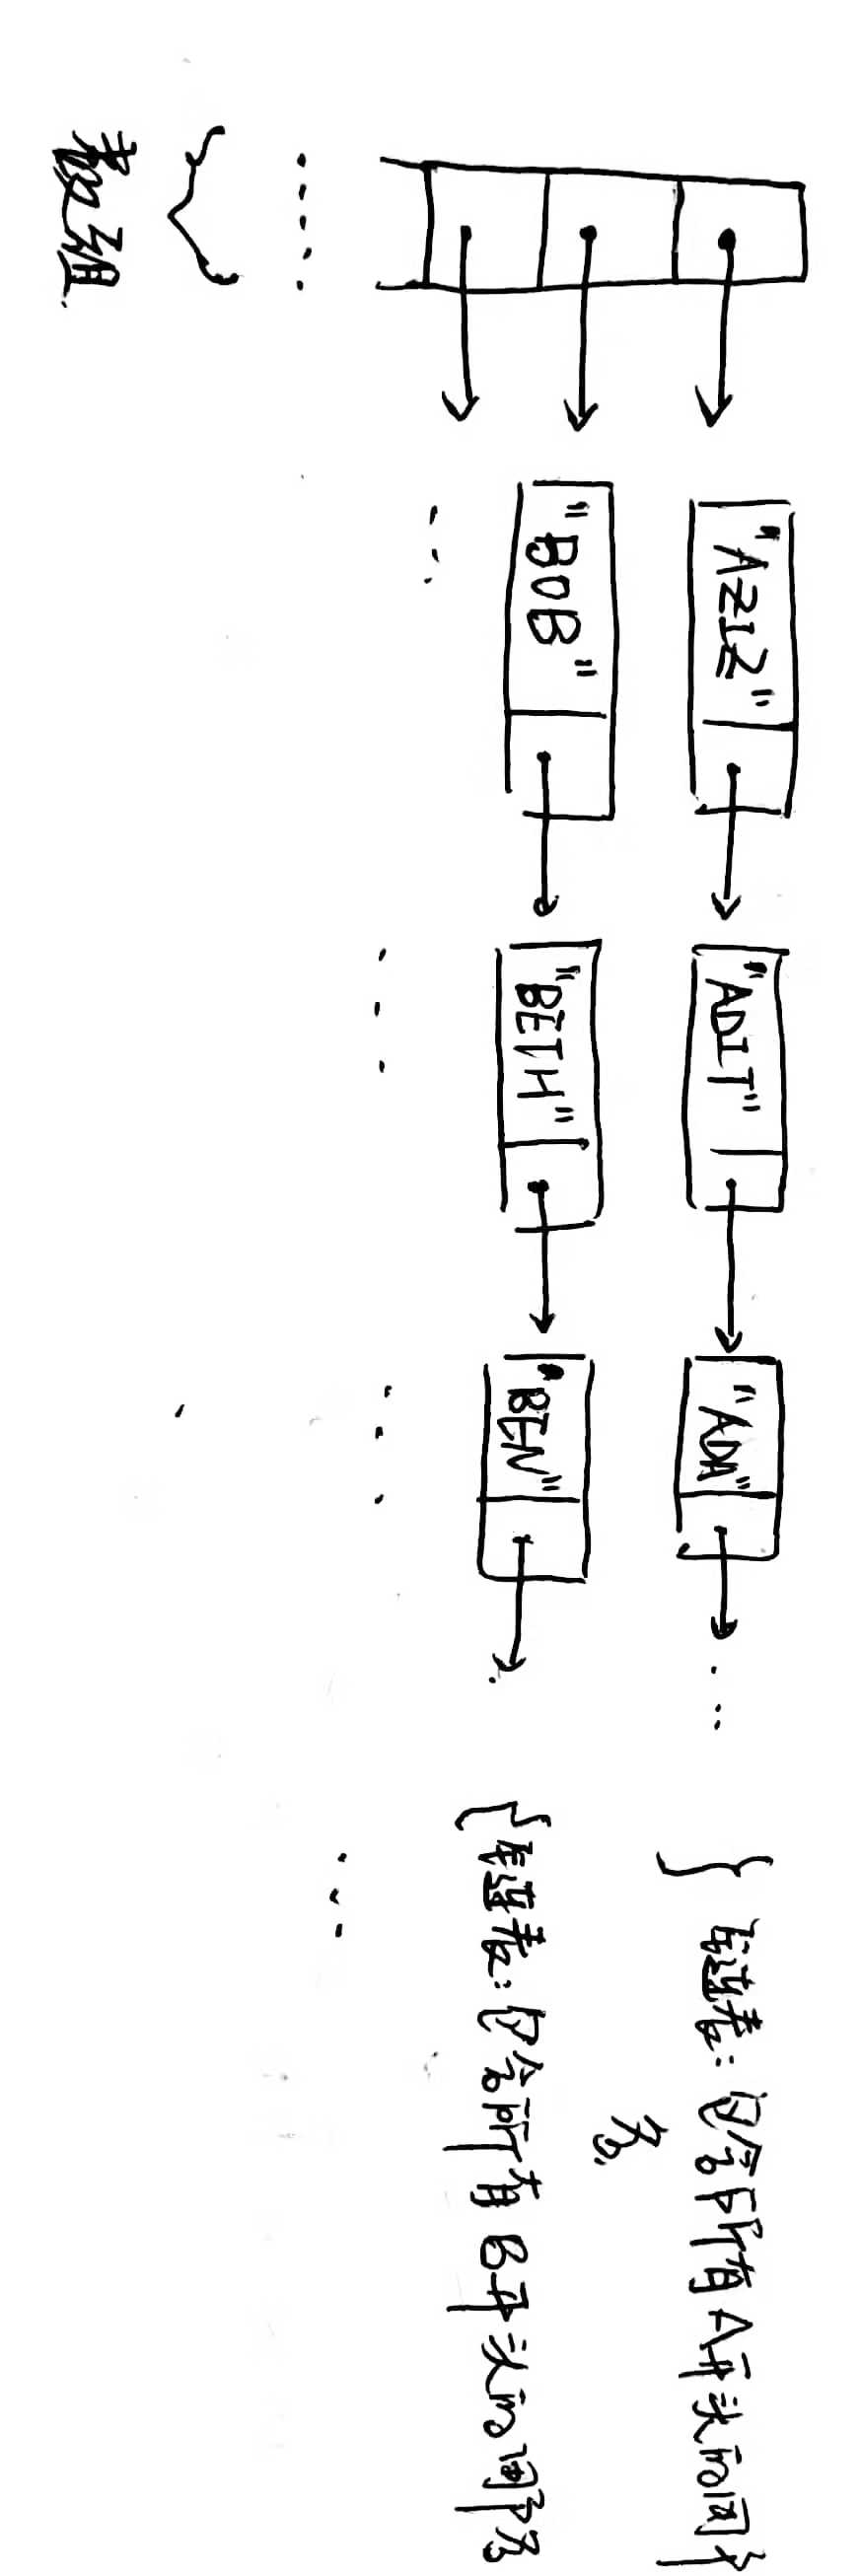 "AZIZ" "ADIT" "ADA" ... 链表: 包含所有A开头的用户
名.
"BOB" "BETH" "BEN" 链表: 包含所有B开头的用户名
数组.